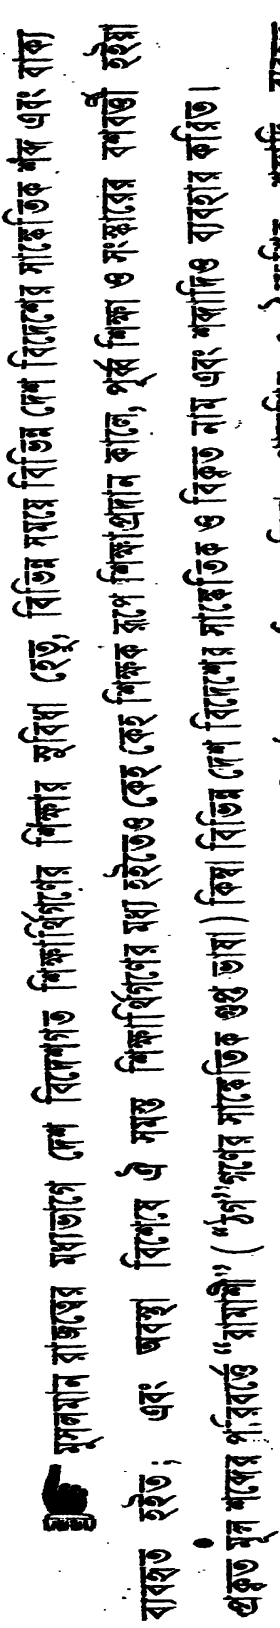 মুসলমান রাজত্বের মধ্যভাগে দেশ বিদেশগত শিক্ষার্থিগণের শিক্ষার সুবিধা হেতু, বিভিন্ন সময়ে বিভিন্ন দেশ বিদেশের সাঙ্কেতিক শব্দ এবং বাক্য
ব্যবহৃত হইত; এবং অবস্থা বিশেষে ঐ সমস্ত শিক্ষার্থিগণের মধ্য হইতেও কেহ কেহ শিক্ষক রূপে শিক্ষাপ্রদান কালে, পূর্ব্ব শিক্ষা ও সংস্কারের বশবর্ত্তী হইয়া
প্রকৃত মূল শব্দের পরিবর্ত্তে “রামাসী” (“ঠগ”গণের সাঙ্কেতিক গুপ্ত ভাষা) কিম্বা বিভিন্ন দেশ বিদেশের সাঙ্কেতিক ও বিকৃত নাম এবং শব্দাদিও ব্যবহার করিত।